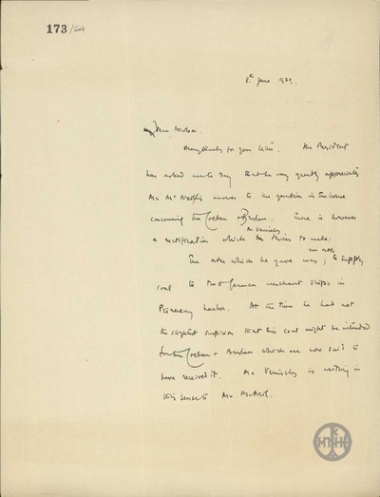 173/
8th June 1921.
My Dear Nicolson.
Many thanks for your letter. The President
has asked me to say that he very greatly appreciates
Mr McNeill's answer to the question in the House
concerning the Goeben & Breslau. There is however
a rectification which Mr Veniselos desires to make:
the order which he gave was, to supply
coal to two German merchant ships in
Piraeus harbor. At the time he had not
the slightest suspicion that this coal might be intended
for the Goeben & Breslau which are now said to
have received it. Mr Veniselos is writing in
this sense to Mr McNeill.
ΜΠΗ